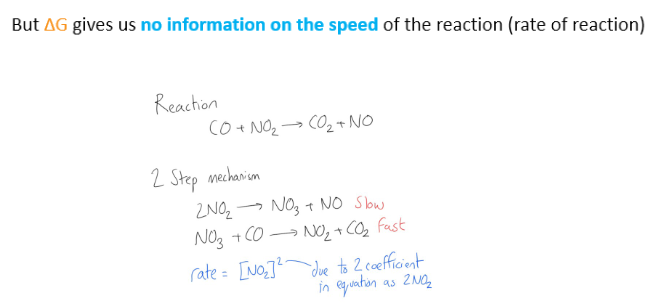 But ΔG gives us no information on the speed of the reaction (rate of reaction)
Reaction
CO + NO₂ → CO₂ + NO
2 Step mechanism
2NO₂ → NO₃ + NO Slow
NO₃ + CO → NO₂ + CO₂ Fast
rate = [NO₂]² due to 2 coefficient
in equation as 2NO₂